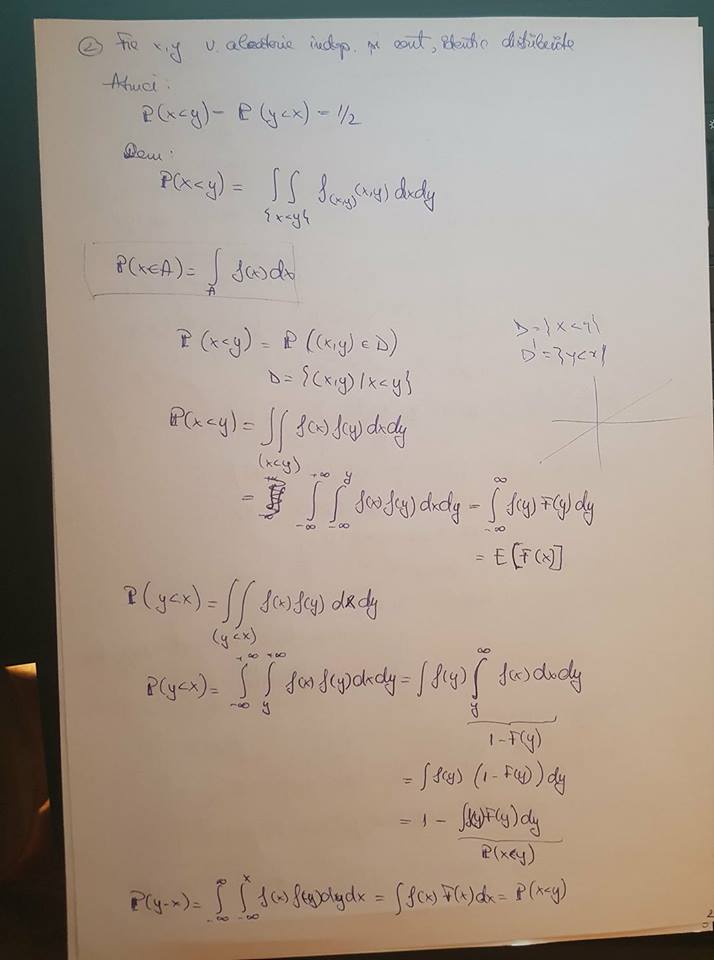 ② Fie x,y v. aleatorie indep. și cont, identic distribuite
Atunci:
P(x<y) - P(y<x) = 1/2
Dem:
P(x<y) = ∬_{x<y} f_(x,y)(x,y) dxdy
P(x∈A) = ∫_A f(x)dx
P(x<y) = P((x,y)∈D)
D={x<y}
D'={y<x}
D={(x,y)/x<y}
P(x<y) = ∬_(x<y) f(x)f(y)dxdy
= ∫_{-∞}^{+∞} ∫_{-∞}^{y} f(x)f(y)dxdy = ∫_{-∞}^{∞} f(y)F(y)dy
= E[F(x)]
P(y<x) = ∬_(y<x) f(x)f(y)dxdy
P(y<x) = ∫_{-∞}^{+∞} ∫_{y}^{+∞} f(x)f(y)dxdy = ∫f(y) ∫_{y}^{∞} f(x)dxdy
1-F(y)
= ∫f(y) (1-F(y))dy
= 1 - ∫f(y)F(y)dy
P(x<y)
P(y-x) = ∫_{-∞}^{∞} ∫_{-∞}^{x} f(x)f(y)dydx = ∫f(x)F(x)dx = P(x<y)